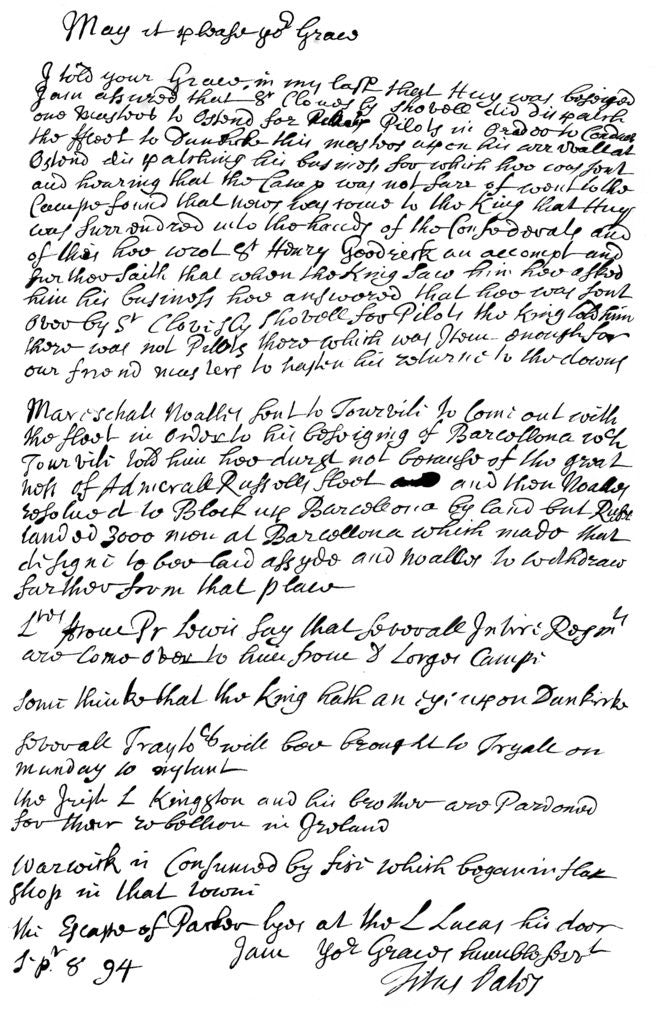 May it please yor Grace
I told your Grace in my last that Huy was beseiged
I am assured that Sr Clovesly Shovell did dispatch
one Masters to Ostend for Pilots in order to
the ffleet to Dunkirke this masters upon his arrivall at
Ostend dispatching his business for which hee was sent
and hearing that the Camp was not farr of went to the
Campe found that news was come to the King that Huy
was surrendred into the hands of the Confederats and
of this hee wrot Sr Henry Goodrick an accompt and
further saith that when the King saw him hee asked
him his business hee answered that hee was sent
over by Sr Clovisly Shovell for Pilots the King told him
there was not Pilots there which was Item enough for
our friend masters to hasten his returne to the downs
Mareschall Noallis sent to Tourvili to come out with
the fleet in order to his beseiging of Barcellona wch
Tourvili told him hee durst not because of the great
ness of Admirall Russells fleet and then Noalles
resolved to Block up Barcelona by land but Russ
landed 3000 men at Barcellona which made that
designe to bee laid assyde and Noalles to withdraw
further from that place
Lres from Pr Lewis say that severall Intire Regmts
are come over to him from D Lorges Campe
some thinke that the King hath an eye upon Dunkirke
severall Traytors will bee brought to Tryall on
munday 10 instant
the Irish L Kingston and his brother are Pardoned
for their rebellion in Ireland
Warwick is Consumed by fire which began in flax
shop in that towne
the Escape of Parker lyes at the L Lucas his door
I am Yor Graces humble servt
Sepr 8 94
Titus Oates